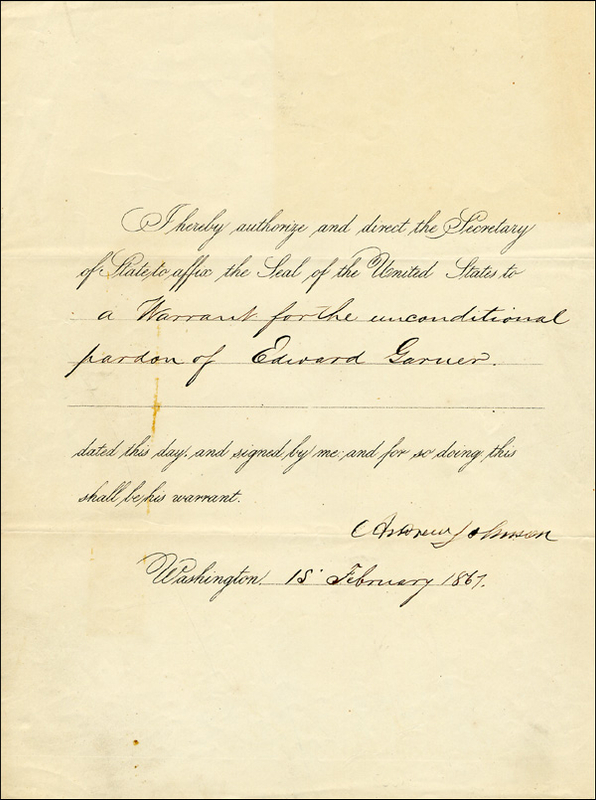 I hereby authorize and direct the Secretary
of State to affix the Seal of the United States to
a Warrant for the unconditional
pardon of Edward Garner.
dated this day, and signed by me; and for so doing this
shall be his warrant.
Andrew Johnson
Washington, 15 February 1867.